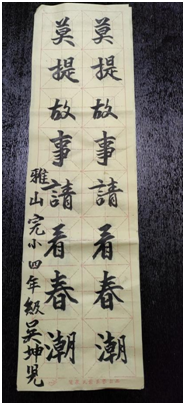 莫提故事請看春潮
莫提故事請看春潮
雅山完小四年級吴坤児